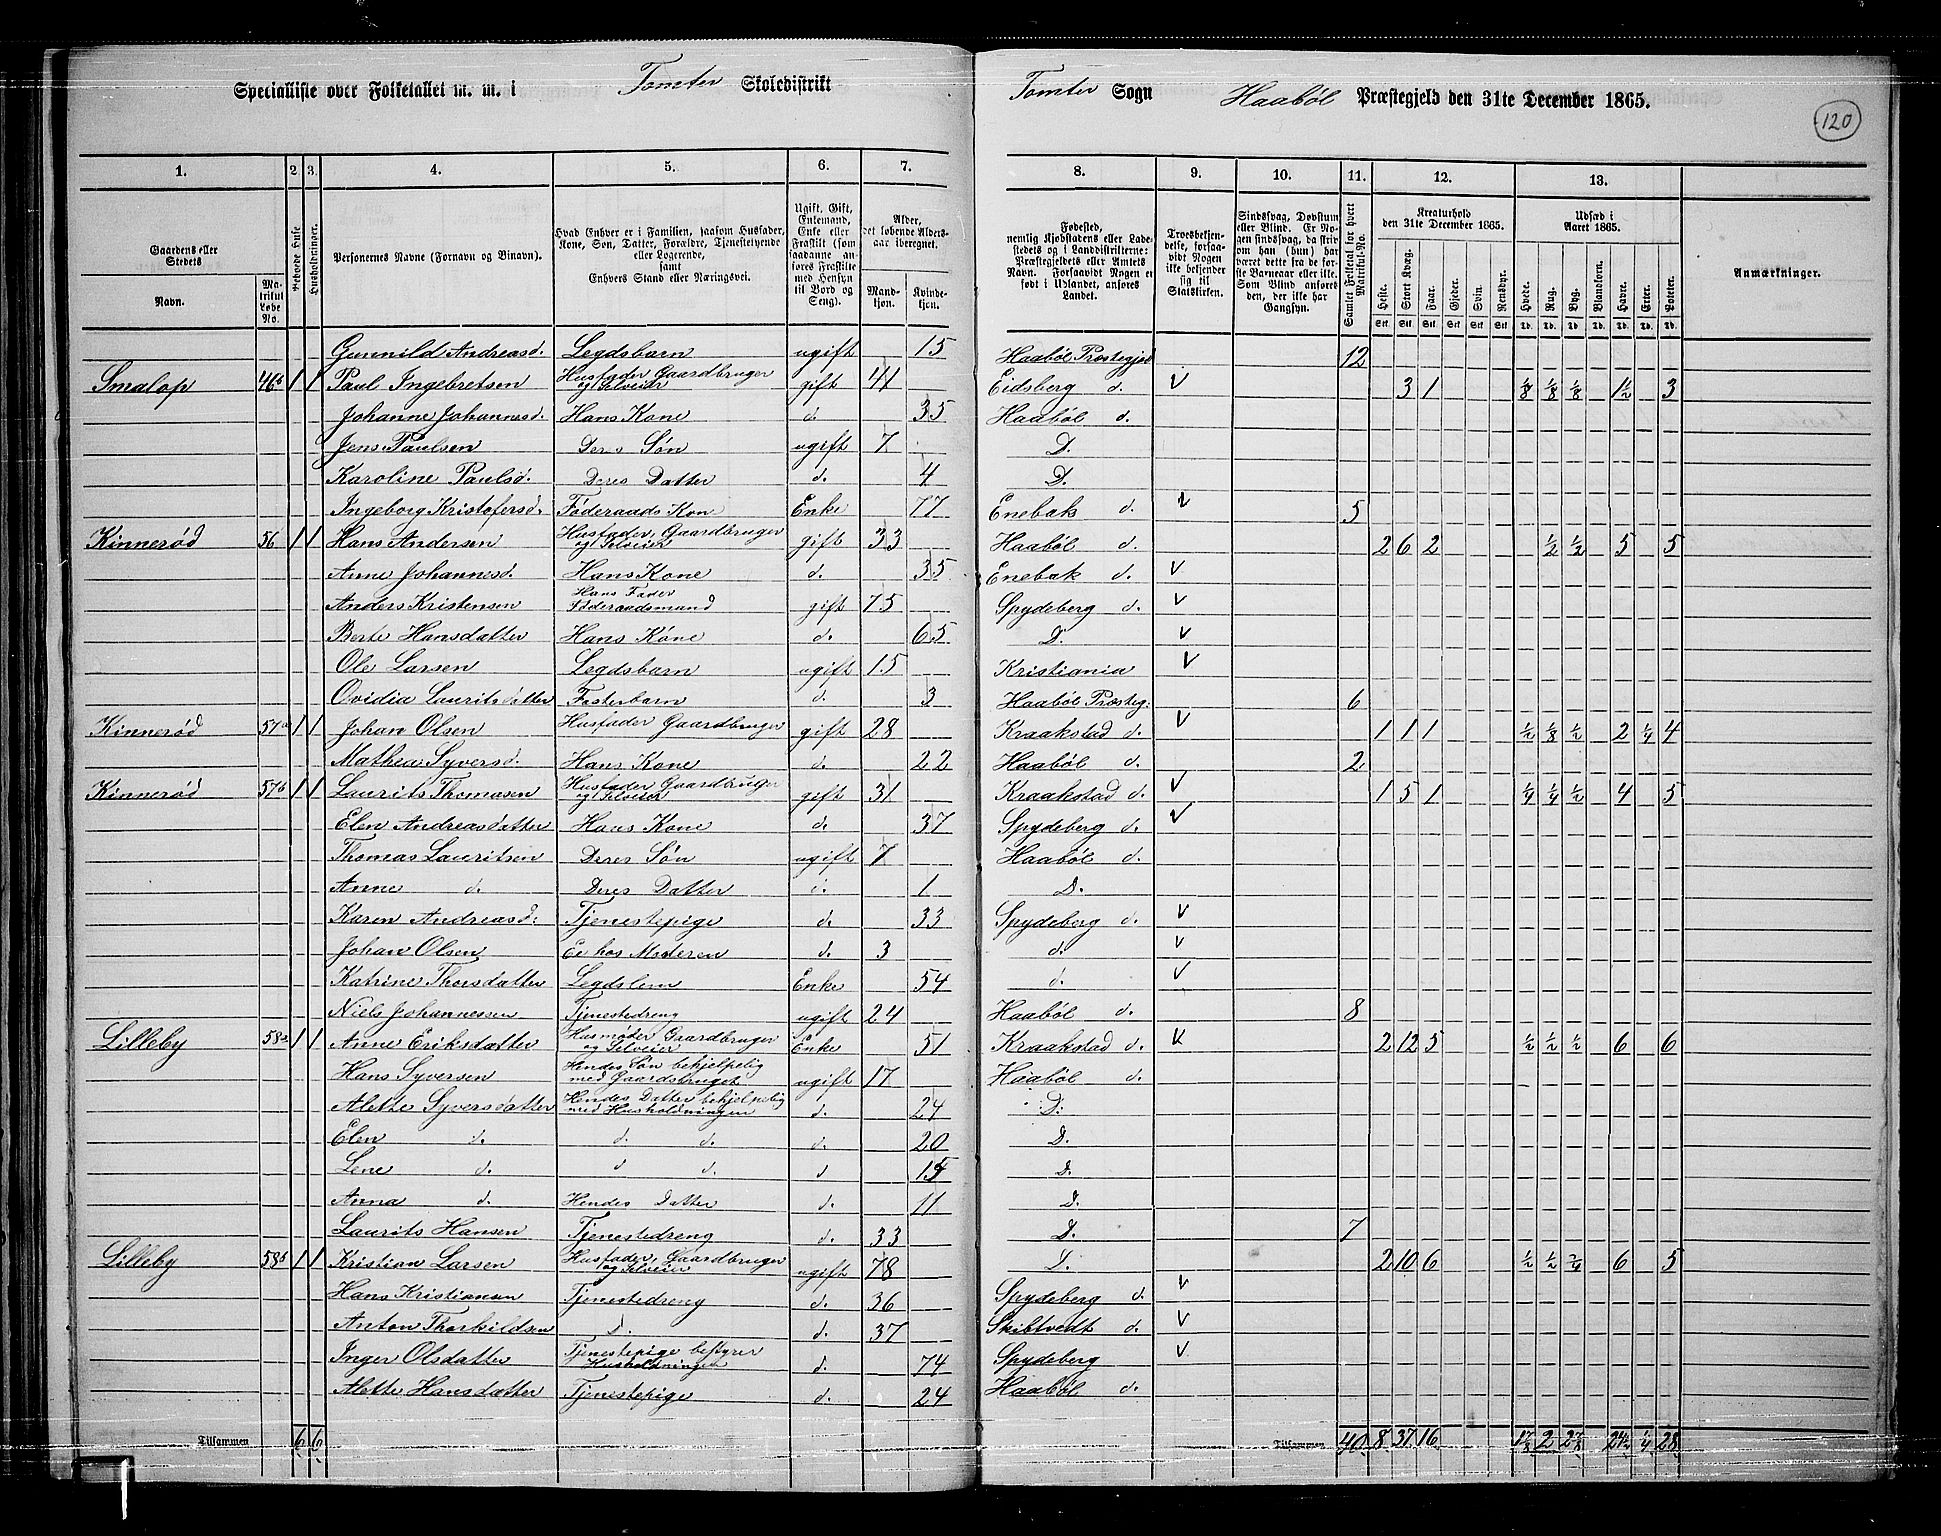 Specialliste over Folketallet m. m. i Tomter Skoledistrikt Tomter Sogn Haabøl Præstegjeld den 31te December 1865.
120
1. 2. 3. 4. 5. 6. 7. 8. 9. 10. 11. 12. 13.
Gaardens eller Stedets
Navn.
Matrikul Løbe No.
Beboede Huse
Husholdninger.
Personernes Navne (Fornavn og Binavn).
Hvad Enhver er i Familien, saasom Husfader, Kone, Søn, Datter, Forældre, Tjenestetyende eller Logerende, samt Enhvers Stand eller Næringsvei.
Ugift, Gift, Enkemand, Enke eller Fraskilt (som saadanne anføres Fraskilte med Hensyn til Bord og Seng).
Alder, det løbende Alders-aar iberegnet.
Mandkjøn.
Kvindekjøn.
Fødested, nemlig Kjøbstadens eller Ladestedets og i Landdistrikterne: Præstegjeldets eller Amtets Navn. Forsaavidt Nogen er født i Udlandet, anføres Landet.
Troesbekjendelse, forsaavidt Nogen ikke bekjender sig til Statskirken.
Sindssvag, Døvstum eller Blind. Er Nogen sindssvag, da skrives om han (hun) har været dette fra de første Barneaar eller ikke. Som Blind anføres den, der ikke har Gangsyn.
Samlet Folketal for hvert Matrikul-No.
Kreaturhold den 31te December 1865.
Heste. Stort Kvæg. Faar. Gjeder. Svin. Rensdyr.
Udsæd i Aaret 1865.
Hvede. Rug. Byg. Blandkorn. Havre. Erter. Poteter.
Anmærkninger.
Gunnild Andreasd. Legdsbarn ugift 15 Haabøl Præstegjel 12
Smalop 46b 1 1 Paul Ingebretsen Husfader Gaardbruger og Selveier gift 41 Eidsberg d. V 3 1 1/8 1/8 1/8 1 1/2 3
Johanne Johannesd. Hans Kone d. 35 Haabøl d.
Jens Paulsen Deres Søn ugift 7 D.
Karoline Paulsd. Deres Datter d. 4 D.
Ingeborg Kristofersd. Føderaads Kon Enke 77 Enebak d. V 5
Kinnerød 56 1 1 Hans Andersen Husfader, Gaardbruger og Selveier gift 33 Haabøl d. 2 6 2 1/2 1/2 5 5
Anne Johannesd. Hans Kone d. 35 Enebak d. V
Anders Kristensen Hans Fader Føderaadsmand gift 75 Spydeberg d. V
Berte Hansdatter Hans Kone d. 65 D. V
Ole Larsen Legdsbarn ugift 15 Kristiania V
Ovidia Lauritsdatter Fosterbarn d. 3 Haabøl Præsteg: 6
Kinnerød 57a 1 1 Johan Olsen Husfader Gaardbruger gift 28 Kraakstad d. V 1 1 1 1/2 1/8 1/2 2 1/4 4
Mathea Syversd. Hans Kone d. 22 Haabøl d. 2
Kinnerød 57b 1 1 Laurits Thomasen Husfader Gaardbruger og Selveier gift 31 Kraakstad d. V 1 5 1 1/4 1/4 1/2 4 5
Elen Andreasdatter Hans Kone d. 37 Spydeberg d. V
Thomas Lauritsen Deres Søn ugift 7 Haabøl d.
Anne d. Deres Datter d. 1 D.
Karen Andreasd: Tjenestepige d. 33 Spydeberg d. V
Johan Olsen Er hos Moderen d. 3 d. V
Katrine Thorsdatter Legdslem Enke 54 d. V
Niels Johannessen Tjenestedreng ugift 24 Haabøl d. 8
Lilleby 58a 1 1 Anne Eriksdatter Husmoder Gaardbruger og Selveier Enke 51 Kraakstad d. V 2 12 5 1/2 1/2 1/2 6 6
Hans Syversen Hendes Søn behjelpelig med Gaardsbruget ugift 17 Haabøl d.
Alette Syversdatter Hendes Datter behjelpelig med Husholdningen d. 24 D.
Elen d. d. d. d. 20 D.
Lene d. d d. d 15 D.
Anna d. Hendes Datter d. 11 D.
Laurits Hansen Tjenestedreng d. 33 D. 7
Lilleby 58b 1 1 Kristian Larsen Husfader, Gaardbruger og Selveier ugift 78 D. 2 10 6 1/2 1/2 3/4 6 5
Hans Kristiansen Tjenestedreng d. 36 Spydeberg d. V
Anton Thorkildsen D. d. 37 Skibtvedt d. V
Inger Olsdatter Tjenestepige bestyrer Husholdningen d. 74 Spydeberg V
Alette Hansdatter Tjenestepige d. 24 Haabøl d.
Tilsammen 6 6 Tilsammen 40 8 37 16 1 7/8 2 2 7/8 24 1/2 1/4 28